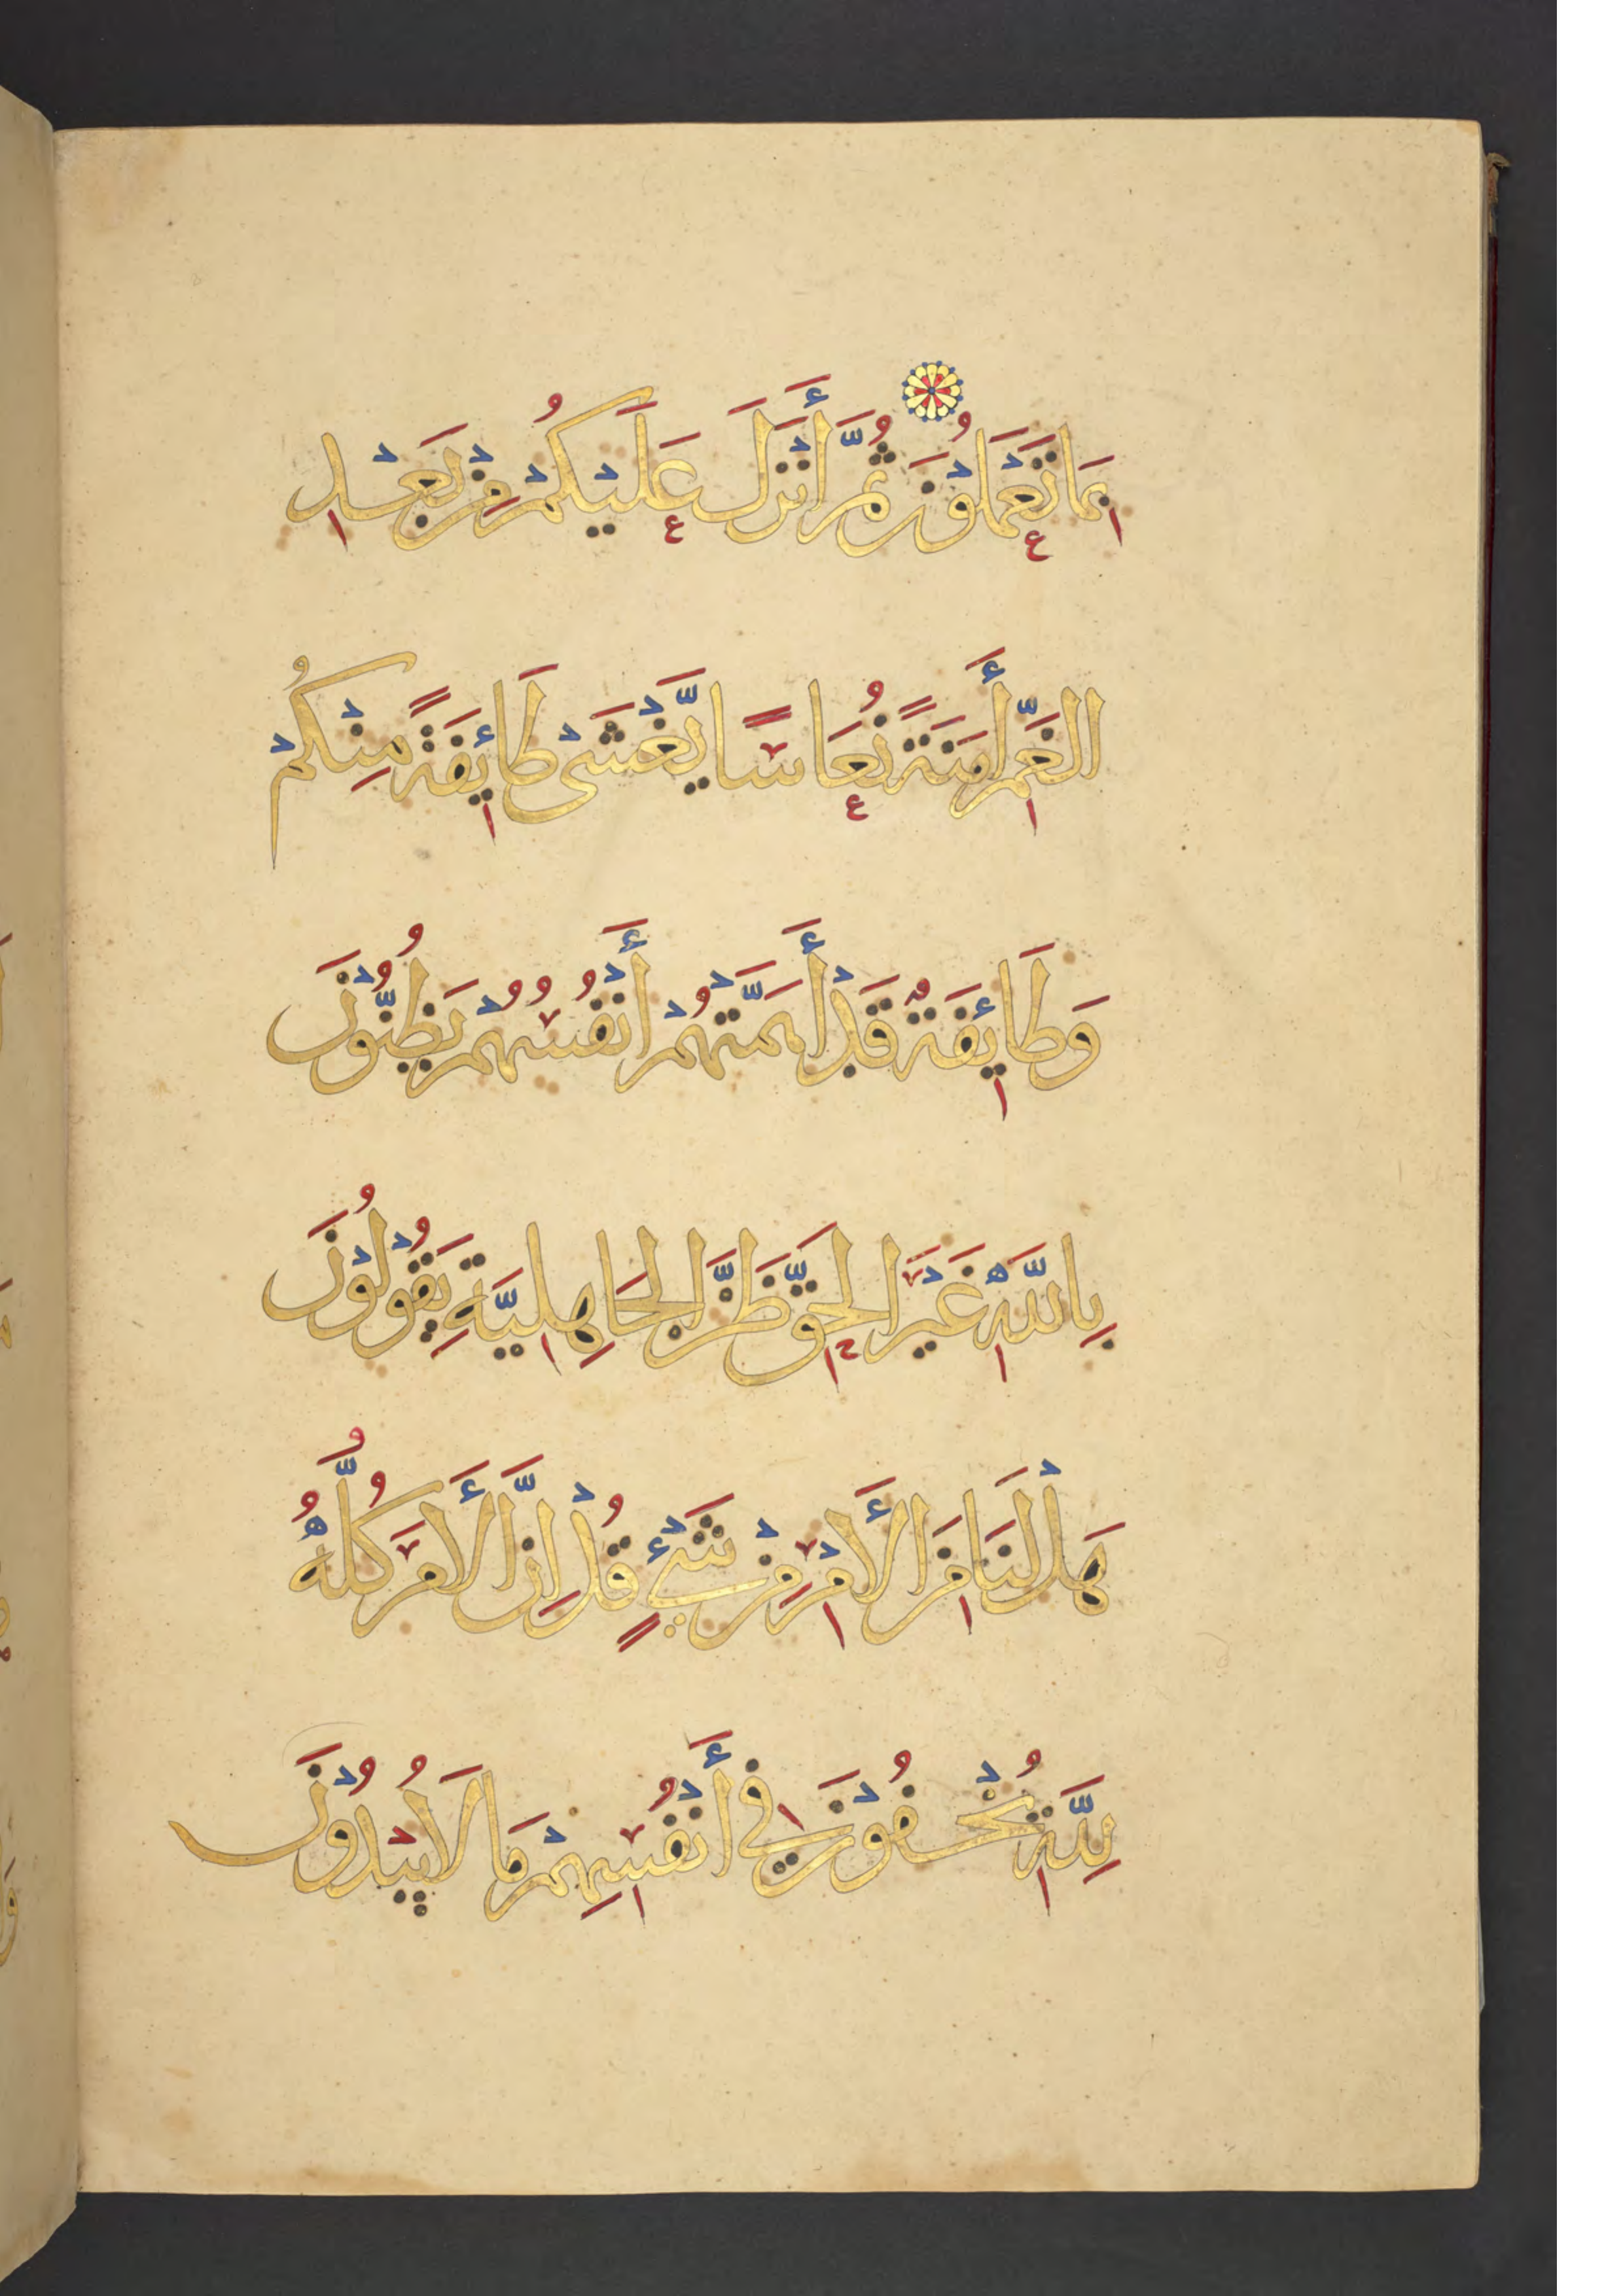 بِمَا تَعْمَلُوْنَ ثُمَّ أَنْزَلَ عَلَيْكُمْ مِنْ بَعْدِ
الغَمِّ أَمَنَةً نُعَاسًا يَّغْشَىْ طَائِفَةً مِنْكُمْ
وَطَائِفَةٌ قَدْ أَهَمَّتْهُمْ أَنْفُسُهُمْ يَظُنُّوْنَ
بِاللَّهِ غَيْرَ الحَقِّ ظَنَّ الجَاهِلِيَّةِ يَقُوْلُوْنَ
هَلْ لَنَا مِنَ الأَمْرِ مِنْ شَيْءٍ قُلْ اِنَّ الأَمْرَ كُلَّهُ
لِلَّهِ يُخْفُوْنَ فِي أَنْفُسِهِمْ مَا لَا يُبْدُوْنَ